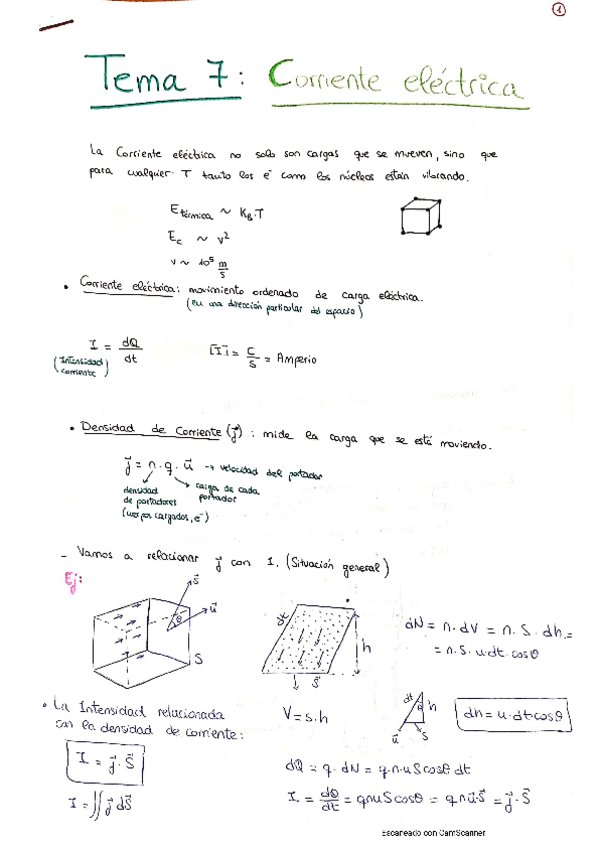 1
Tema 7: Corriente eléctrica
La Corriente eléctrica no solo son cargas que se mueven, sino que
para cualquier T tanto los e⁻ como los núcleos están vibrando.
E térmica ~ K_B·T
E_c ~ v²
v ~ 10⁵ m/s
• Corriente eléctrica: movimiento ordenado de carga eléctrica.
(en una dirección particular del espacio)
I = dQ/dt
[I] = C/s = Amperio
(Intensidad corriente)
• Densidad de Corriente (j⃗): mide la carga que se está moviendo.
j⃗ = n·q·u⃗ → velocidad del portador
densidad de portadores
carga de cada portador
(cuerpos cargados, e⁻)
- Vamos a relacionar j⃗ con I. (Situación general)
Ej:
S⃗
θ
u⃗
S
dt
h
S⃗
dN = n·dV = n·S·dh =
= n·S·u·dt·cosθ
• La Intensidad relacionada
con la densidad de corriente:
V = S·h
dt
θ
h
u⃗
S
dh = u·dt·cosθ
I = j⃗·S⃗
dQ = q·dN = q·n·u S cosθ dt
I = ∬ j⃗ dS⃗
I = dQ/dt = qnuS cosθ = q n u⃗·S⃗ = j⃗·S⃗
Escaneado con CamScanner